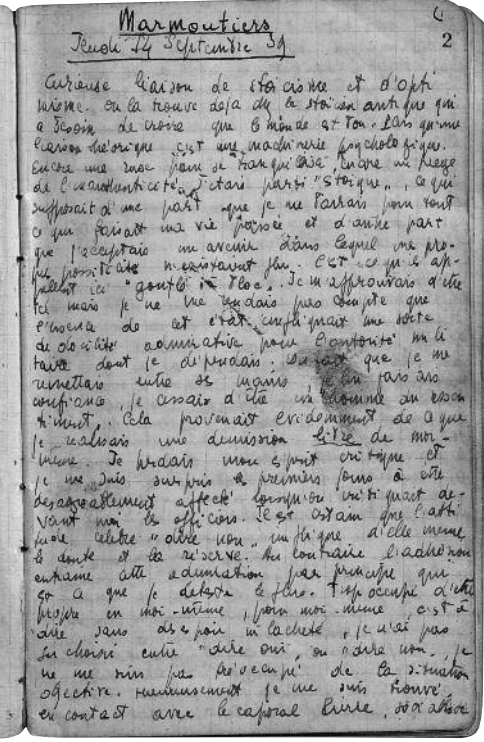 Marmoutiers
Jeudi 14 Septembre 39
2
Curieuse liaison de stoïcisme et d'opti
misme. On la trouve déjà chez le stoïcien antique qui
a besoin de croire que le monde est bon. Plus qu'une
liaison théorique c'est une machinerie psychologique.
Encore une ruse pour se tranquilliser, encore un piège
de l'inauthenticité. J'étais parti "stoïque", ce qui
supposait d'une part que je me
ce qui faisait ma vie passée et d'autre part
que j'acceptais un avenir dans lequel mes pro-
pres possibilités n'existaient plus. C'est ce qu'ils ap-
pellent ici "gonflé à bloc". Je m'approuvais d'être
tel mais je ne me rendais pas compte que
l'essence de cet état impliquait une sorte
de docilité admirative pour l'autorité mili
taire dont je dépendais. Du fait que je me
remettais entre ses mains, je lui faisais
confiance, je cessais d'être un homme du ressen
timent. Cela provenait évidemment de ce que
je réalisais une démission libre de moi-
même. Je perdais mon esprit critique et
je me suis surpris les premiers jours à être
désagréablement affecté lorsqu'on critiquait de-
vant moi les officiers. Il est certain que l'atti
tude célèbre "dire non" implique d'elle même
le doute et la réserve. Au contraire l'adhésion
entraîne cette admiration par principe qui
est ce que je déteste le plus. Trop occupé d'être
propre en moi-même, pour moi-même, c'est à
dire sans désespoir ni lâcheté, je n'ai pas
su choisir entre "dire oui" ou "dire non", je
ne me suis pas préoccupé de la situation
objective. Heureusement je me suis trouvé
en contact avec le caporal Pierre,